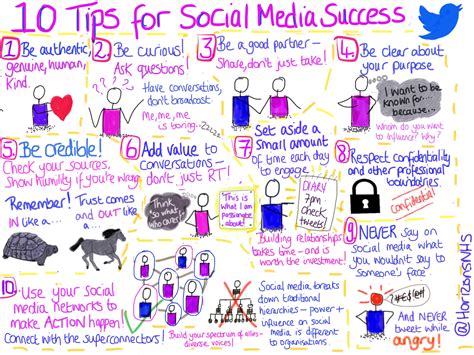 10 Tips for Social Media Success
1 Be authentic,
genuine, human,
kind.
2 Be curious!
Ask questions!
Have conversations,
don't broadcast
Me, me, me
is boring...zzzzz
3 Be a good partner-
Share, don't just take!
4 Be clear about
your purpose
I want to be
known for...
because...
Whom do you want
to influence? Why?
5 Be credible!
Check your sources.
Show humility if you're wrong.
Remember! Trust comes
IN like a... and OUT LIKE
a...
6 Add value to
conversations-
don't just RT!
Think
"so what,
who cares?"
This is
what I am
passionate
about...
7 Set aside a
small amount
of time each day
to engage!
DIARY
7pm
Check
tweets!
Building relationships
takes time - and is
worth the investment!
8 Respect confidentiality
and other professional
boundaries.
Confidential!
9 NEVER say on
social media what
you wouldn't say to
someone's face
*!*£@!
And NEVER
tweet while
angry!
10 Use your social
media networks to
make ACTION happen!
Connect with the Superconnectors!
Build your spectrum of allies-
diverse voices!
Social media breaks
down traditional
hierarchies - power +
influence on social
media is different to
organisations.
@HorizonsNHS